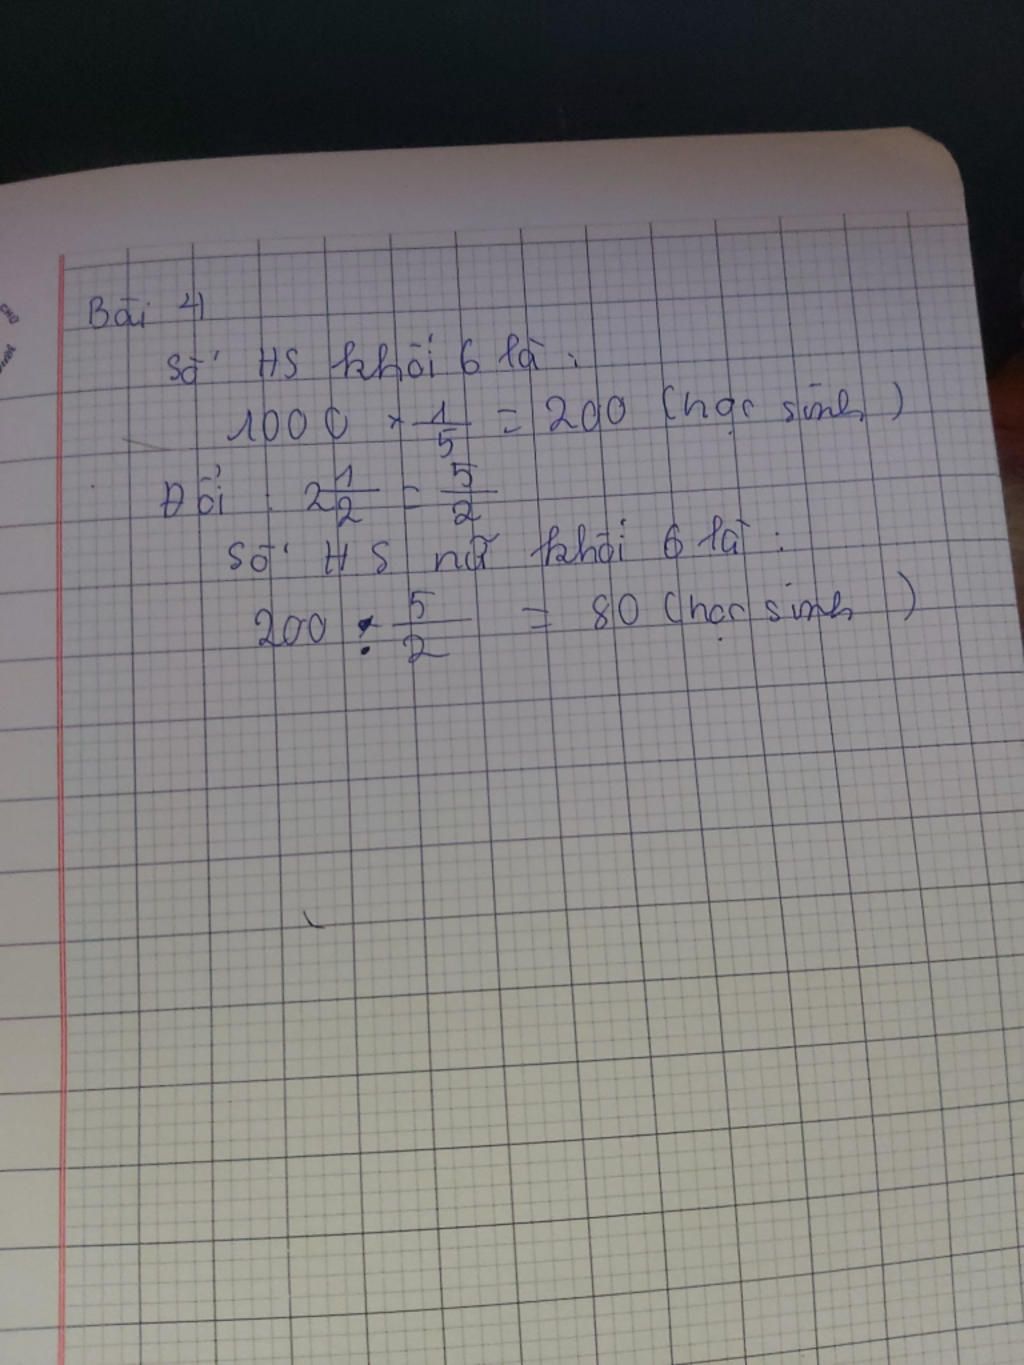 Bài 4
Số HS khối 6 là :
1000 × 1/5 = 200 (học sinh)
Đổi : 2 1/2 = 5/2
Số HS nữ khối 6 là :
200 : 5/2 = 80 (học sinh)